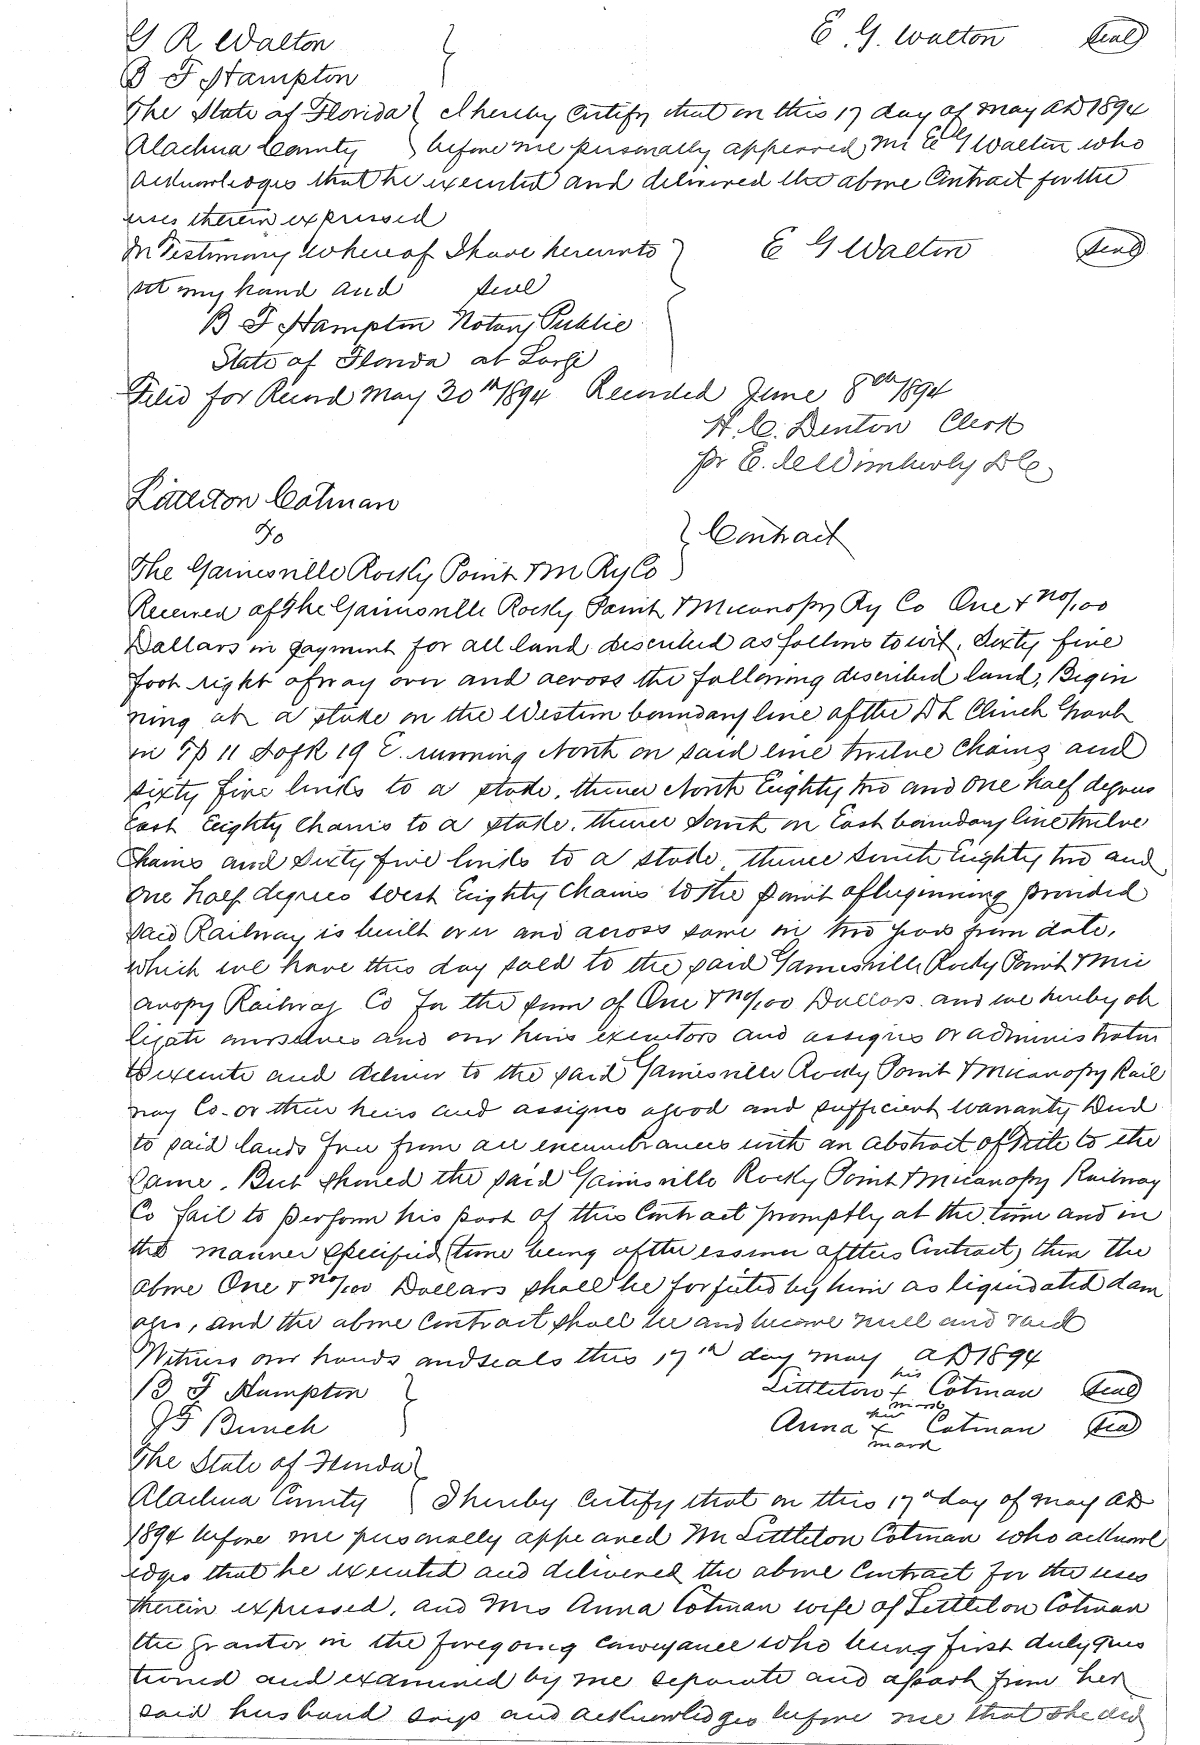 G R Walton } E. G. Walton (Seal)
B F Hampton
The State of Florida } I hereby Certify that on this 17 day of May AD 1894
Alachua County } before me personally appeared Mr E G Walton who
acknowledges that he executed and delivered the above Contract for the
uses therein expressed
In Testimony Whereof I have hereunto } E G Walton (Seal)
set my hand and seal
B F Hampton Notary Public
State of Florida at Large
Filed for Record May 30th 1894 Recorded June 8th 1894
H. C. Denton Clerk
pr E. Wimberly DC
Littleton Cotman
To } Contract
The Gainesville Rocky Point & M Ry Co
Received of the Gainesville Rocky Point & Micanopy Ry Co One & no/100
Dollars in payment for all land described as follows to wit, Sixty five
foot right of way over and across the following described land, Begin
ning at a stake on the Western boundary line of the D L Clinch Grant
in Tp 11 S of R 19 E. running North on said line twelve Chains and
sixty five links to a stake, thence North Eighty two and one half degrees
East Eighty Chains to a stake, thence South on East boundary line twelve
Chains and Sixty five links to a stake, thence South Eighty two and
one half degrees West Eighty Chains to the point of beginning provided
said Railway is built over and across same in two years from date,
which we have this day sold to the said Gainesville Rocky Point & Mic
anopy Railway Co for the sum of One & no/100 Dollars and we hereby ob
ligate ourselves and our heirs executors and assigns or administrators
to execute and deliver to the said Gainesville Rocky Point & Micanopy Rail
way Co. or their heirs and assigns a good and sufficient Warranty Deed
to said lands free from all encumbrances with an abstract of title to the
same. But should the said Gainesville Rocky Point & Micanopy Railway
Co fail to perform his part of this Contract promptly at the time and in
the manner specified (time being of the essence of this Contract) then the
above One & no/100 Dollars shall be forfeited by him as liquidated dam
ages, and the above Contract shall be and become null and void
Witness our hands and seals this 17th day May AD 1894
B F Hampton } Littleton his x mark Cotman (Seal)
J F Bunch } Anna her x mark Cotman (Seal)
The State of Florida }
Alachua County } I hereby Certify that on this 17th day of May AD
1894 before me personally appeared Mr Littleton Cotman who acknowl
edges that he executed and delivered the above Contract for the uses
therein expressed, and Mrs Anna Cotman wife of Littleton Cotman
the grantor in the foregoing Conveyance who being first duly ques
tioned and examined by me separate and apart from her
said husband says and acknowledges before me that she did